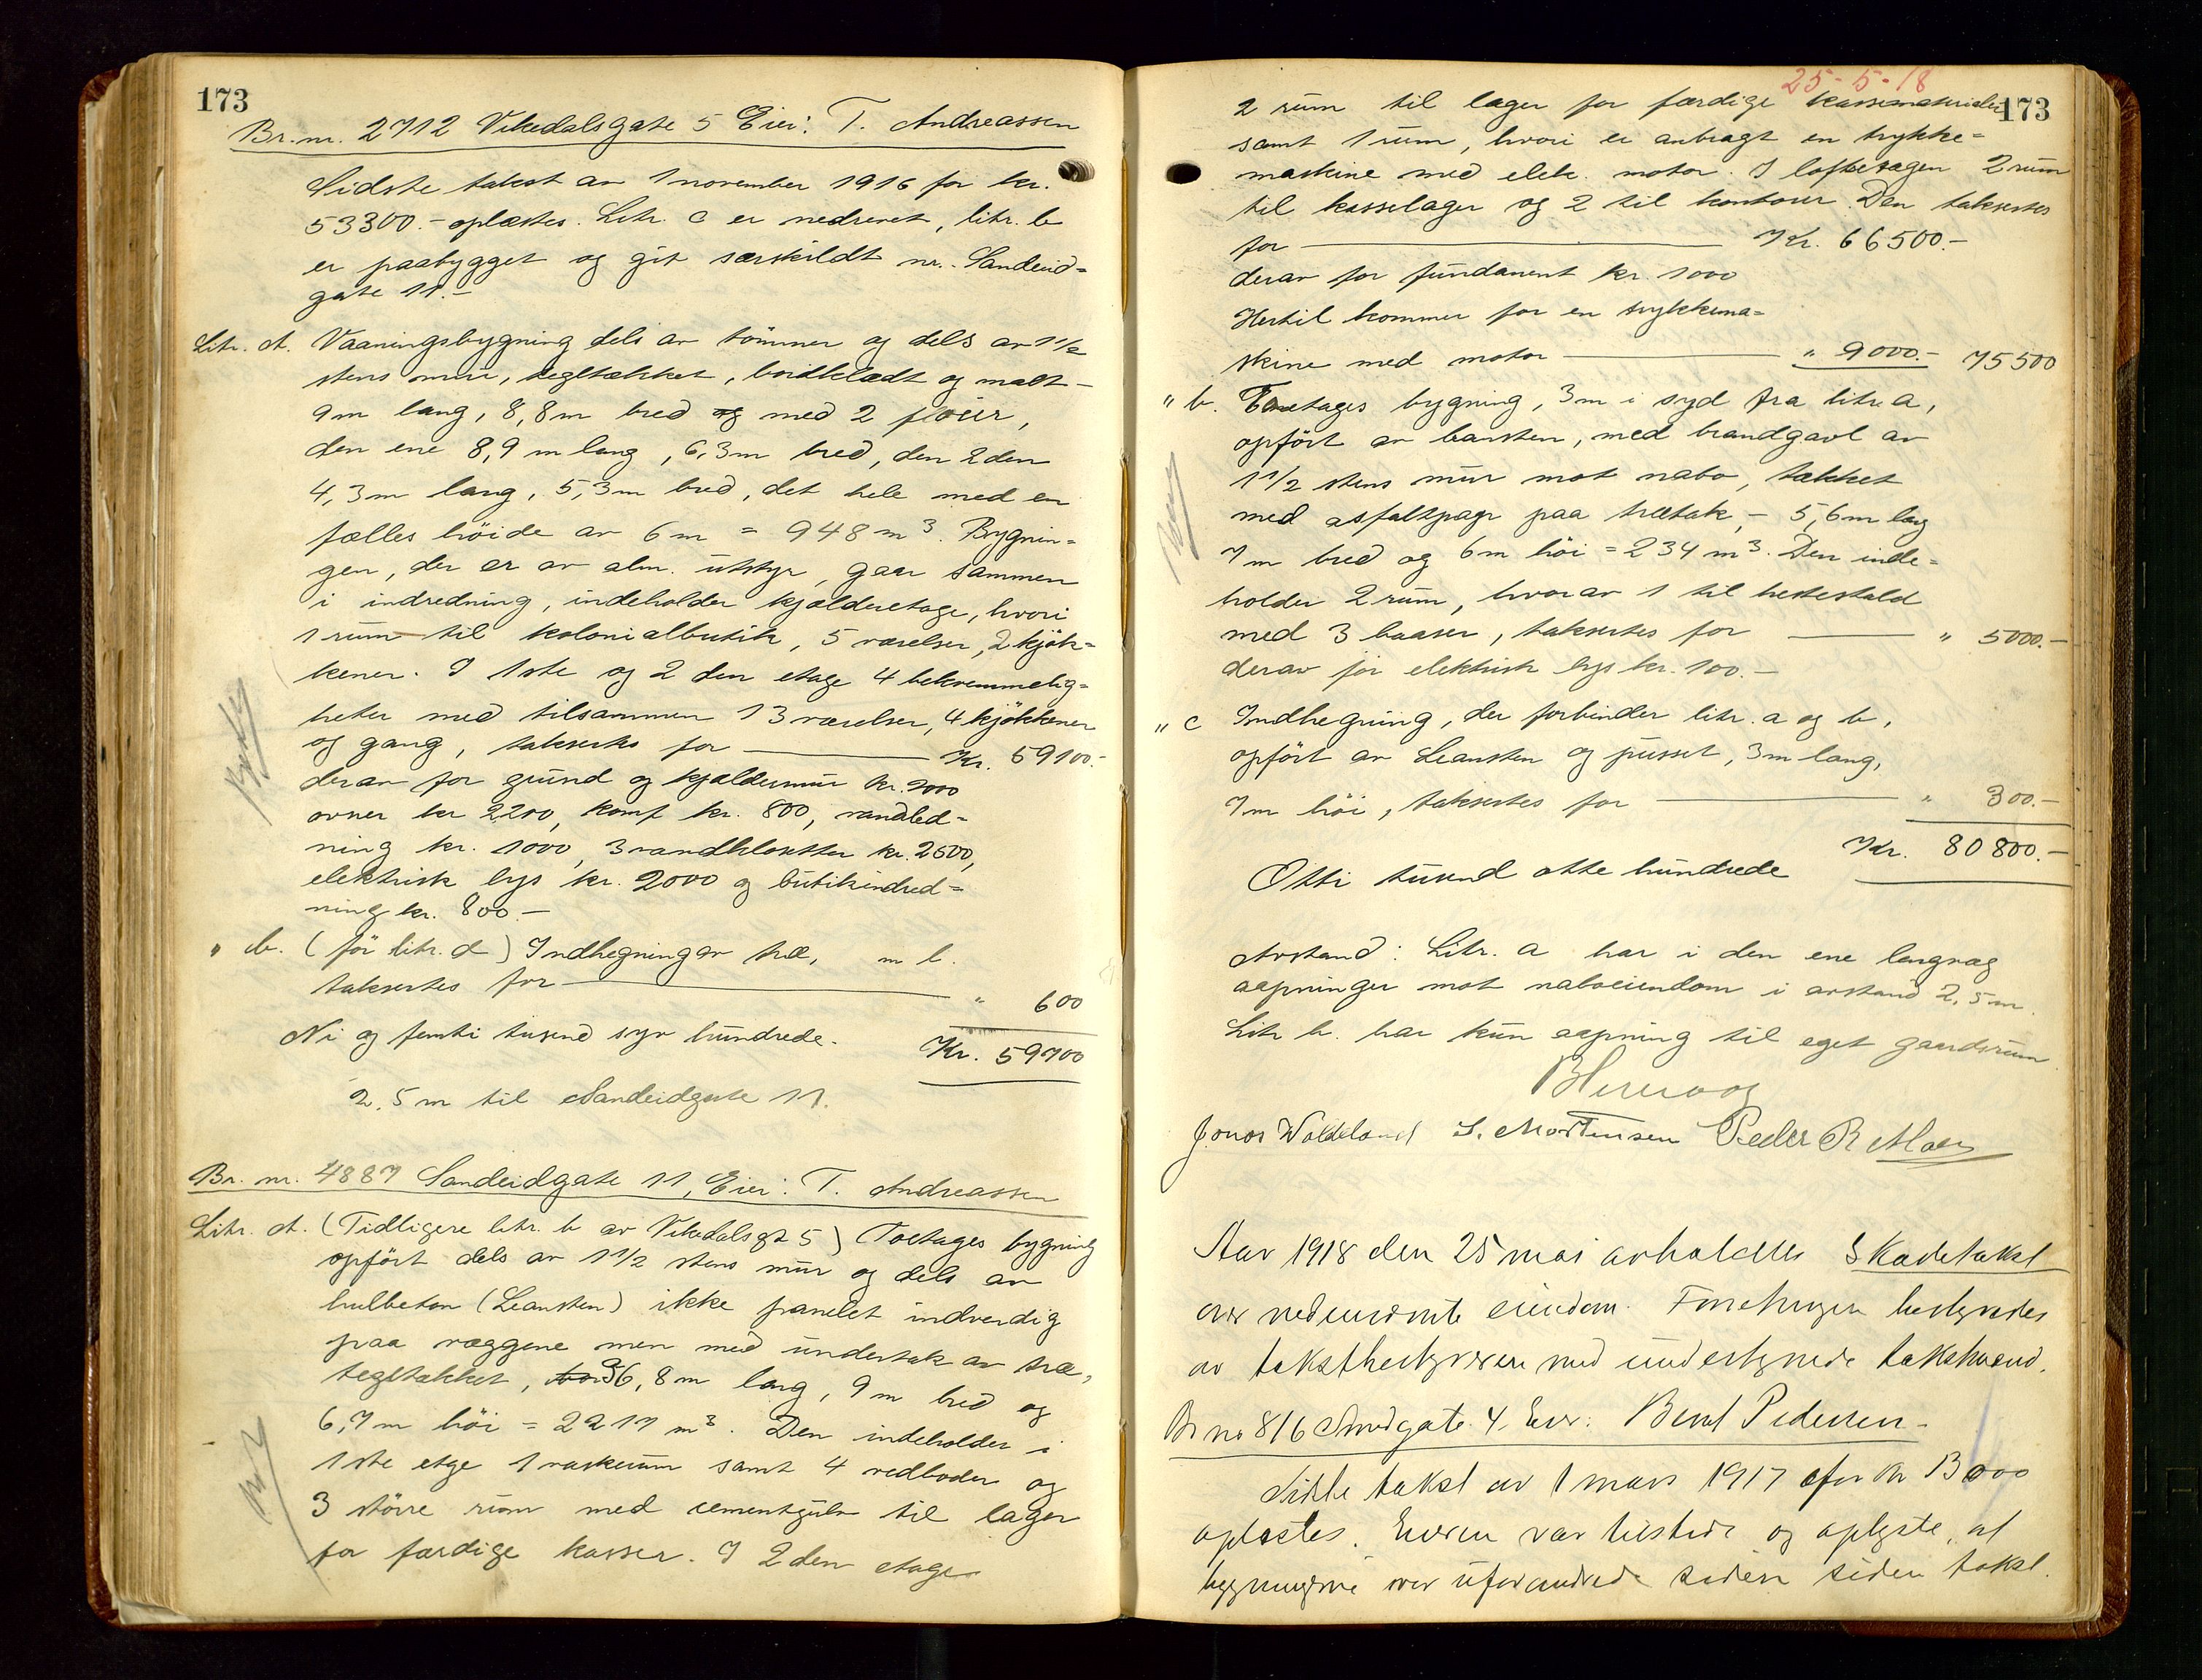 173
Br. nr. 2712 Vikedalsgate 5 Eier: T. Andreassen
Sidste takst av 1 november 1916 for kr.
53300.- oplæstes. Litr. c er nedrevet, litr. b
er paabygget og git særskildt nr. Sandeid-
gate 11.-
Litr. A. Vaaningsbygning dels av tømmer og dels av 1 1/2
stens mur, tegltækket, bordklædt og malt -
9m lang, 8,8m bred og med 2 fløier,
den ene 8,9 m lang, 6,3m bred, den 2den
4,3m lang, 5,3m bred, det hele med en
fælles høide av 6m = 948 m³. Bygnin-
gen, der er av alm. utstyr, gaar sammen
i indredning, indeholder kjælderetage, hvori
1 rum til kolonialbutik, 5 værelser, 2 kjøk-
kener. I 1ste og 2den etage 4 bekvemmelig-
heter med tilsammen 13 værelser, 4 kjøkkener
og gang, taksertes for Kr. 59100.-
derav for grund og kjældermur kr. 2000
ovner kr 2200, komf kr. 800, vandled-
ning kr. 1000, 3 vandklosetter kr. 2500,
elektrisk lys kr. 2000 og butikindred-
ning kr. 800.-
" b. (før litr. d) Indhegning av træ, m l.
taksertes for " 600
Ni og femti tusend syv hundrede. Kr. 59700
2,5 m til Sandeidgate 11.
Br. nr. 4887 Sandeidgate 11, Eier: T. Andreassen
Litr. A. (Tidligere litr. b av Vikedalsgt 5) Toetages bygning
opført dels av 1 1/2 stens mur og dels av
hulbeton (Leansten) ikke panelet indvendig
paa væggene men med undertak av træ,
tegltækket, 36,8m lang, 9m bred og
6,7m høi = 2217 m³. Den indeholder i
1ste etge 1 vaskerum samt 4 vedboder og
3 større rum med cementgulv til lager
for færdige kasser. I 2den etage
25-5-18
173
2 rum til lager for færdige kassematerialer
samt 1 rum, hvori er anbragt en trykke-
maskine med elek. motor. I loftsetagen 2 rum
til kasselager og 2 til kontorer. Den taksertes
for Kr. 66500.-
derav for fundament kr. 1000
Hertil kommer for en trykkema-
skine med motor " 9000.- 75500
" b. Toetages bygning, 3m i syd fra litr. a,
opført av leansten, med brandgavl av
1 1/2 stens mur mot nabo, tækket
med asfaltpap paa trætak, - 5,6m lang
7m bred og 6m høi = 234 m³. Den inde-
holder 2 rum, hvorav 1 til hestestald
med 3 baaser, taksertes for " 5000.-
derav for elektrisk lys kr. 100.-
" c Indhegning, der forbinder litr. a og b,
opført av Leansten og pusset, 3m lang,
7m høi, taksertes for " 300.-
Kr. 80800.-
Otti tusend otte hundrede
Avstand: Litr. a har i den ene langvæg
aapninger mot naboeiendom i avstand 2,5m.
Litr b. har kun aapning til eget gaardsrum
Jonas Waldeland S. Mortensen Peder R Moen
Aar 1918 den 25 mai avholdtes Skadetakst
over nedennævnte eiendom. Forretningen bestyredes
av takstbestyreren med undertegnede takstmænd.
Br no 816 Smedgate 4. Eier: Bent Pedersen-
Sidste takst av 1 mars 1917 for kr 13000
oplæstes. Eieren var tilstede og oplyste at
bygningerne var uforandrede siden sidste takst.